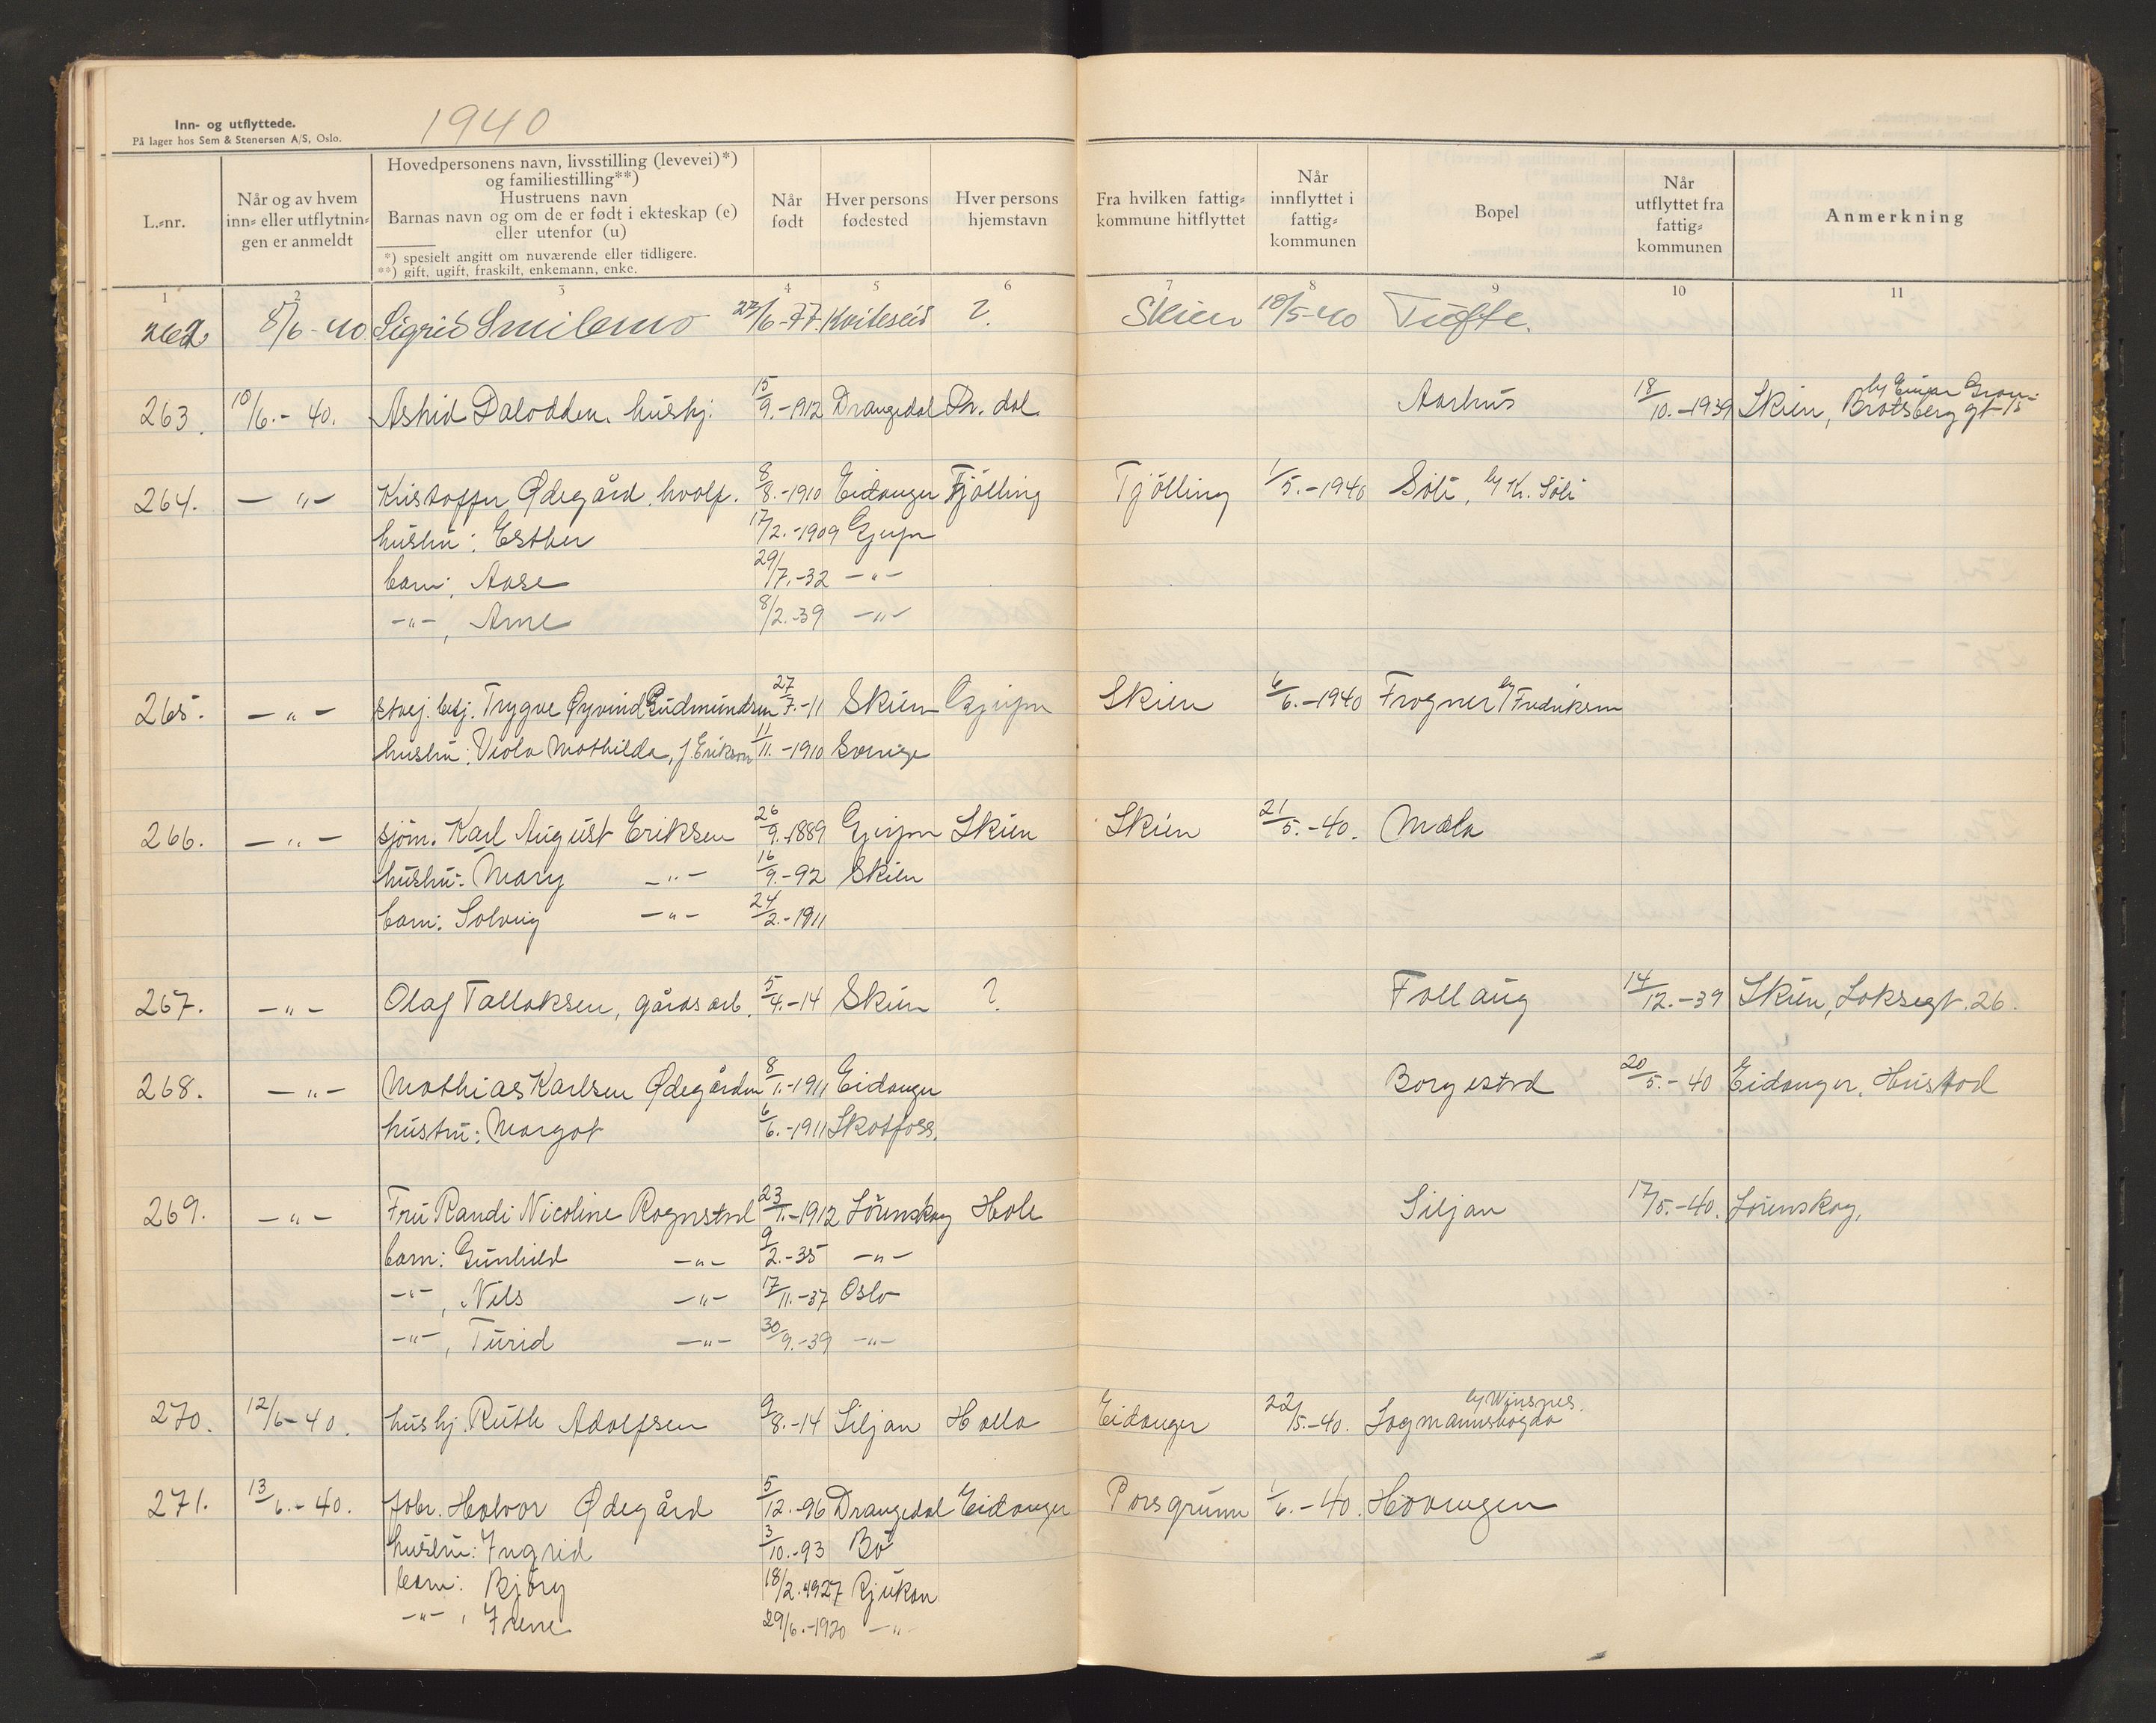 1940
Inn- og utflyttede.
På lager hos Sem & Stenersen A/S, Oslo.
L.-nr.
Når og av hvem inn- eller utflytnin- gen er anmeldt
Hovedpersonens navn, livsstilling (levevei)*)
og familiestilling**)
Hustruens navn
Barnas navn og om de er født i ekteskap (e)
eller utenfor (u)
*) spesielt angitt om nuværende eller tidligere.
**) gift, ugift, fraskilt, enkemann, enke.
Når født
Hver persons fødested
Hver persons hjemstavn
Fra hvilken fattig- kommune hitflyttet
Når innflyttet i fattig- kommunen
Bopel
Når utflyttet fra fattig- kommunen
Anmerkning
1 2 3 4 5 6 7 8 9 10 11
262 8/6-40 Sigrid Smilemo 22/6-77. Kviteseid ? Skien 10/5-40 Tufte.
263. 10/6.-40. Astrid Dalodden, hushj. 15/9.-1912 Drangedal Dr. dal Aarhus 18/10.-1939 Skien, Bratsberg gt 15
by Einar
264. -"- Kristoffer Ødegård, hvalf. 8/8.-1910 Eidanger Tjølling Tjølling 1/5.-1940 Søli, by K. Søli
hustru: Esther 17/2.-1909 Gjerpn
barn: Aase 29/7.-32 -"-
-"-, Arne 8/2.-39 -"-
265. -"- Trygve Øyvind Gudmundsen 27/7.-11 Skien Gjerpn Skien 6/6.-1940 Frogner by Fredriksen
hustru: Viola Mathilde, f. Erikson 11/11.-1910 Sverige
266. -"- sjøm. Karl August Eriksen 26/9.-1889 Gjerpn Skien Skien 21/5.-40. Mæla
hustru: Mary -"- 16/9.-92 Skien
barn: Solveig -"- 24/2.-1911
267. -"- Olaf Tallaksen, gårdsarb. 5/4.-14 Skien ? Follaug 14/12.-39 Skien, Loksegt. 26.
268. -"- Mathias Karlsen Ødegården 8/1.-1911 Eidanger Borgestad 20/5.-40 Eidanger, Hustad
hustru: Margot 6/6.-1911 Skotfoss.
269. -"- Fru Randi Nicoline Rognstad 23/1.-1912 Lørenskog Hole Siljan 17/5.-40. Lørenskog.
barn: Gunhild -"- 9/2.-35 -"-
-"-, Nils -"- 17/11.-37 Oslo
-"-, Turid -"- 30/9.-39 -"-
270. 12/6-40. hushj. Ruth Adolfsen 9/8.-14 Siljan Holla Eidanger 22/5.-40. Lagmannskogda
by Winsnes.
271. 13/6.-40. fabr. Halvor Ødegård 5/12.-96 Drangedal Eidanger Porsgrunn 1/6.-40. Hovengen
hustru: Ingrid 3/10.-93 Bø
barn: Bjørg 18/2.-1927 Rjukan
-"-, Irene 29/6.-1920 -"-